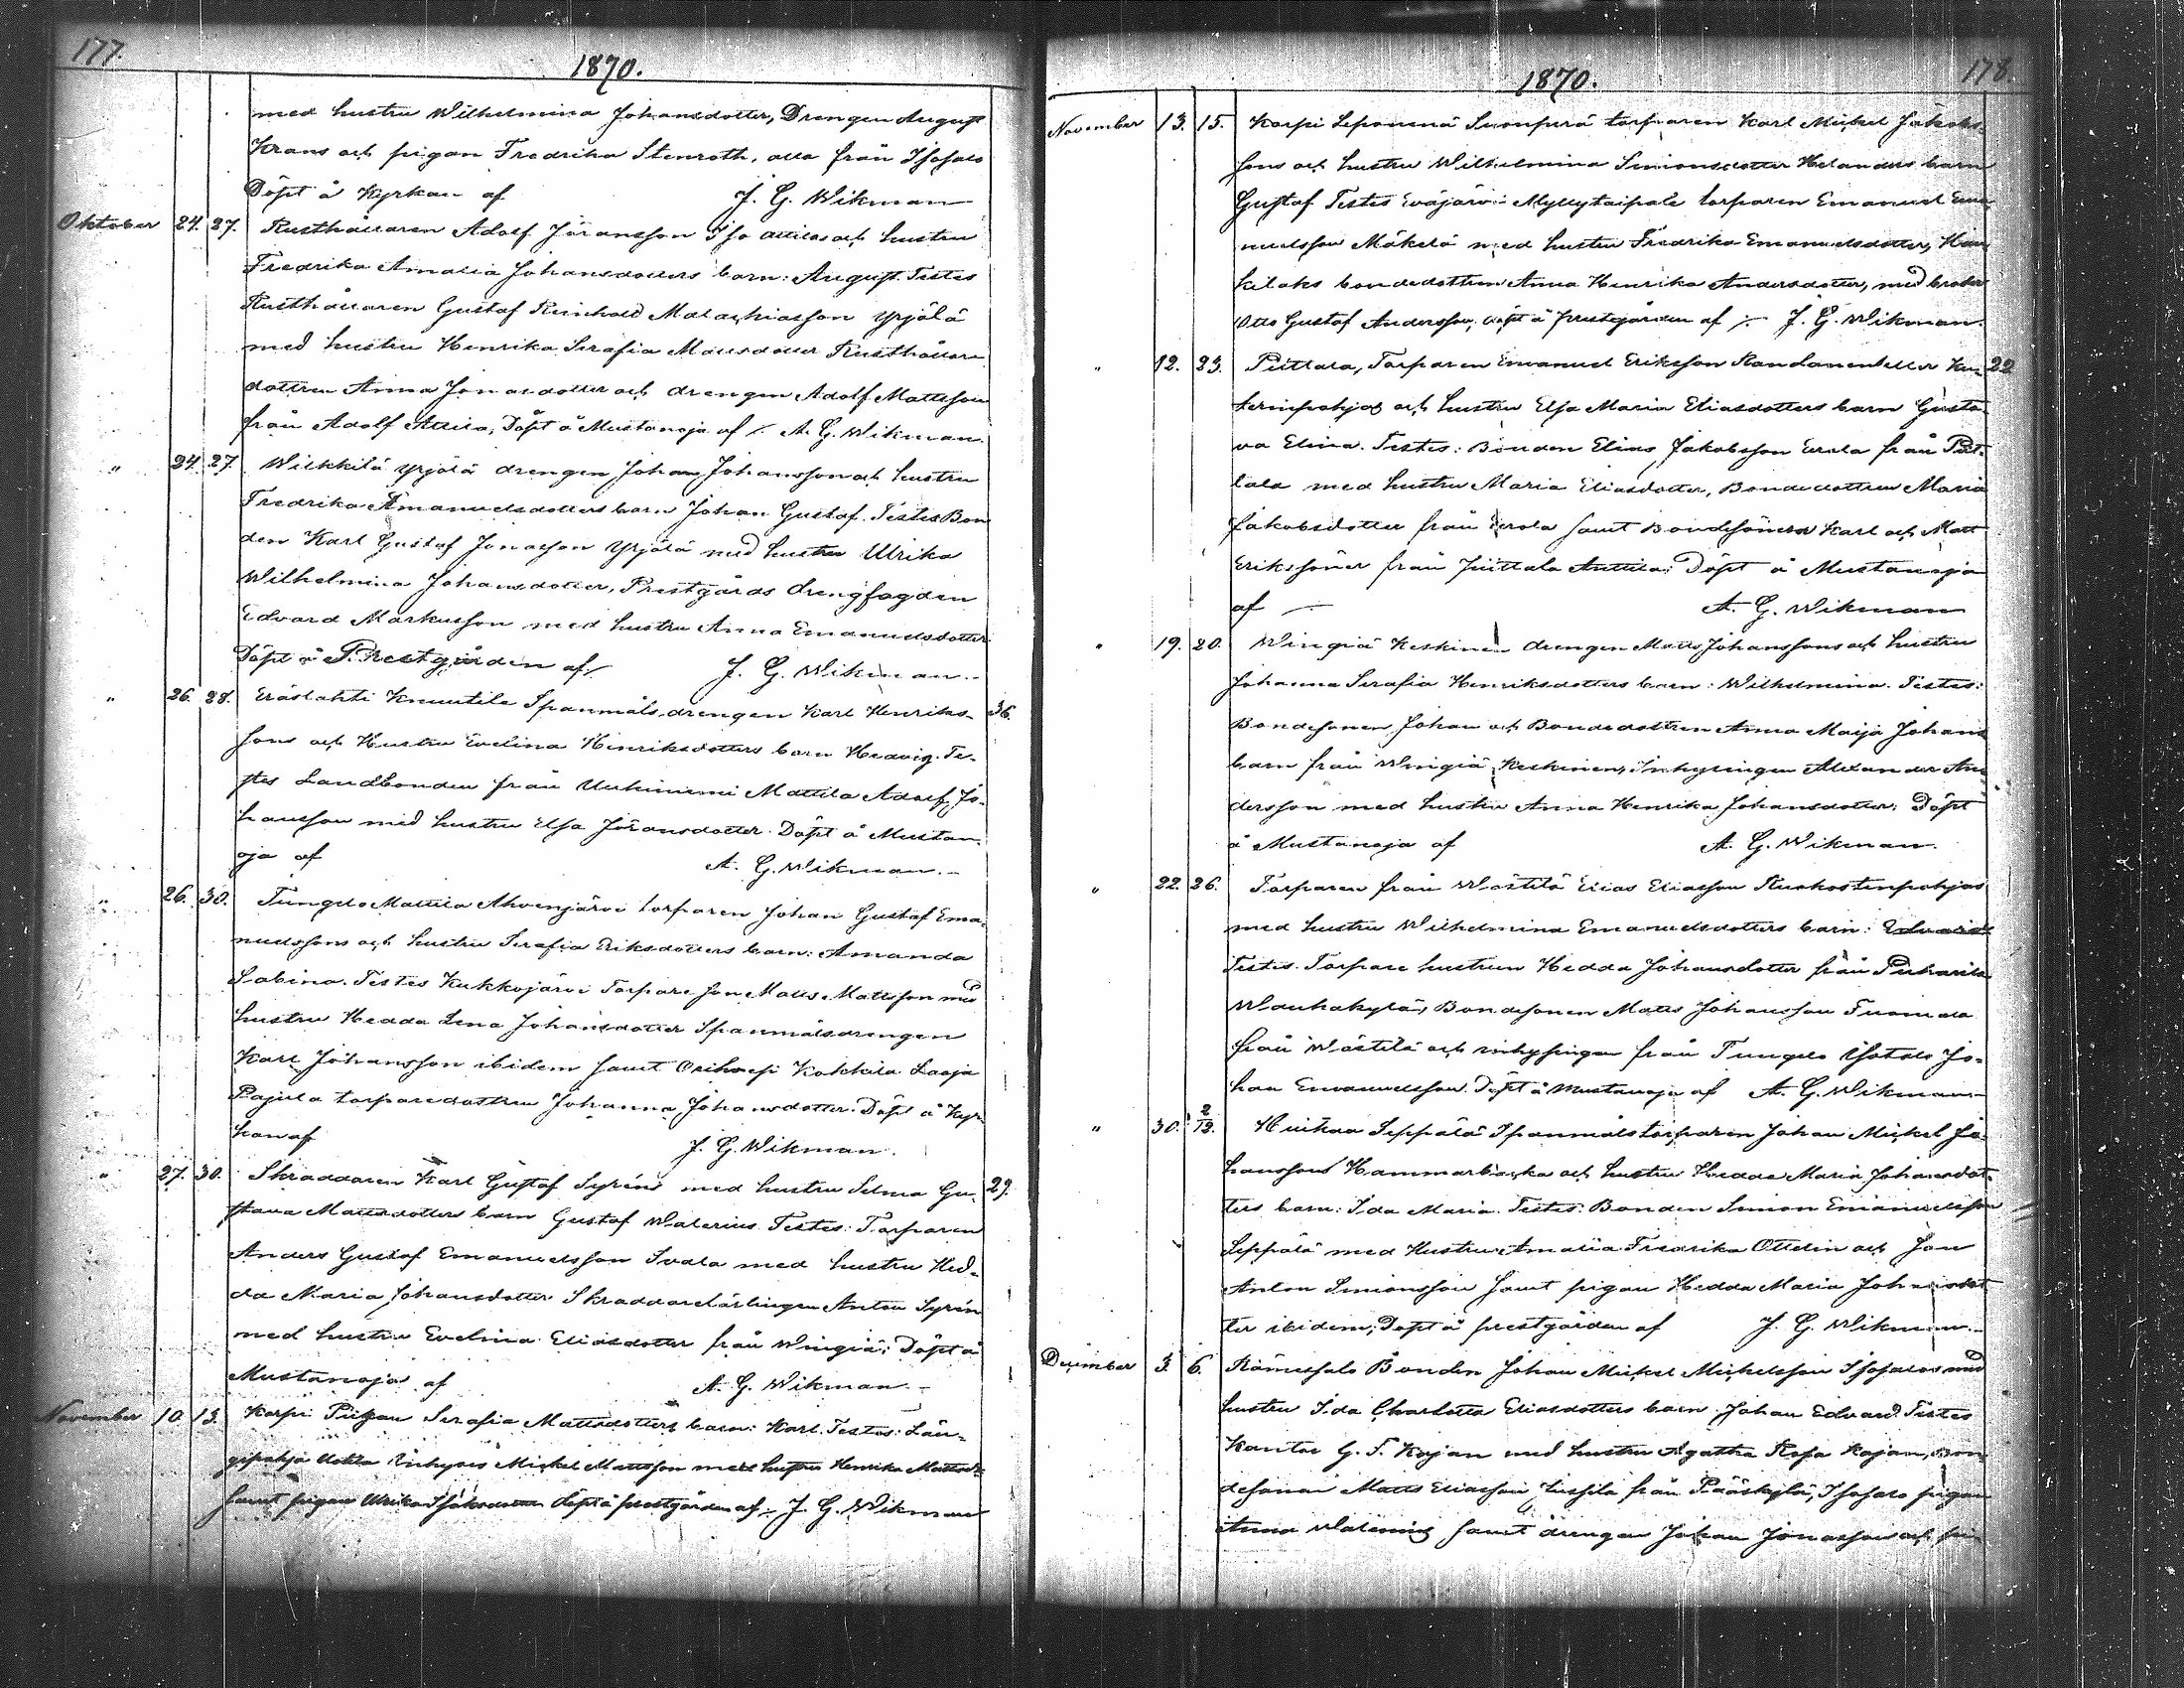 177.
1870.
med hustru Wilhelmina Johansdotter, Drengen August
Krans och pigan Fredrika Stenroth, alla från Isosalo
Döpt å Kyrkan af J. G. Wikman
Oktober 24. 27. Rusthållaren Adolf Göransson Iso Attilas och hustru
Fredrika Amalia Johansdotters barn: August. Testes
Rusthållaren Gustaf Reinhold Malachiasson Yrjölä
med hustru Henrika Serafia Mattsdotter Rusthållare
dottren Anna Jonasdotter och drengen Adolf Mattsson
från Adolf Attila, Döpt å Mustanoja af /. A. G. Wikman.
" 24. 27. Wilkkilä Yrjölä drengen Johan Johansson och hustru
Fredrika Emanuelsdotters barn Johan Gustaf. Testes Bon
den Karl Gustaf Jonasson Yrjölä med hustru Ulrika
Wilhelmina Johansdotter, Prestgårds drengfogden
Edvard Markusson med hustru Anna Emanuelsdotter
Döpt å Prestgården af / J. G. Wikman..
" 26. 28. Eräslahti Knuutila Spanmåls drengen Karl Henriks- 36.
sons och Hustru Evelina Henriksdotters barn Hedvig. Te-
stes Landbonden från Uuhiniemi Mattila Adolf Jo-
hansson med hustru Elsa Göransdotter. Döpt å Mustan-
oja af A. G. Wikman.-
" 26. 30. Tungelo Mattila Ahvenjärvi torparen Johan Gustaf Ema-
nuelssons och hustru Serafia Eriksdotters barn: Amanda
Sabina. Testes Kukkojärvi Torpare son Matts Mattsson med
hustru Hedda Lena Johansdotter Spanmålsdrengen
Karl Johansson ibidem samt Orihvesi Kokkila Laaja
Pajula torparedottren Johanna Johansdotter. Döpt å Kyr-
kan af J. G. Wikman.
" 27. 30. Skraddaren Karl Gustaf Syréns med hustru Selma Gu- 29.
stava Mattsdotters barn Gustaf Walerius. Testes: Torparen
Anders Gustaf Emanuelsson Svala med hustru Hed-
da Maria Johansdotter Skraddarelärlingen Anton Syrén
med hustru Evelina Eliasdotter från Wingiä; Döpt å
Mustanoja af A. G. Wikman.-
November 10. 13. Korpi Pigan Serafia Mattsdotters barn: Karl. Testes: Län-
gipohja Inhyses Mickel Mattsson med hustru Henrika Mattsd:
samt pigan Ulrika Isaksdotter Döpt å prestgården af /. J. G. Wikman
178.
1870.
November 13. 15. Korpi Leponenä Suonperä torparen Karl Mickel Jakobs-
sons och hustru Wilhelmina Simonsdotter Helanders barn
Gustaf Testes Eväjärvi Myllytaipale torparen Emanuel Ema
nuelsson Mäkelä med hustru Fredrika Emanuelsdotter, Han
kilaks bondedottren Anna Henrika Andersdotter, med broder
Otto Gustaf Andersson, döpt å prestgården af /. J. G. Wikman.
" 12. 23. Piittala, Torparen Emanuel Eriksson eller Ku- 22
ternipohjas och hustru Elsa Maria Eliasdotters barn Gusta-
va Elina. Testes: Bonden Elias Jakobsson Eerola från Piit-
tala med hustru Maria Eliasdotter, Bondedottren Maria
Jakobsdotter från Eerola samt Bondesönerna Karl och Matt
Erikssöner från Juittala Anttila; Döpt å Mustanoja
af A. G. Wikman
" 19. 20. Wingiä Keskinen drengen Matts Johanssons och hustru
Johanna Serafia Henriksdotters barn: Wilhelmina. Testes:
Bondesonen Johan och Bondedottren Anna Maija Johans
barn från Wingiä Keskinen, Inhysingen Alexander An
dersson med hustru Anna Henrika Johansdotter; Döpt
å Mustanoja af A. G. Wikman.
" 22. 26. Torparen från Wästilä Elias Eliasson Ruokostenpohjas
med hustru Wilhelmina Emanuelsdotters barn: Edvard
Testes. Torpare hustrun Hedda Johansdotter från Pirkarila
Wauhakylä, Bondesonen Matts Johansson Tuomela
från Wästilä och inhysingen från Tungelo Isotalo Jo-
han Emanuelsson. Döpt å Mustanoja af A. G. Wikman.-
" 30. 2/12. Huikaa Seppälä Spanmåls torparen Johan Mickel Jo-
hanssons Hammarbacka och hustru Hedda Maria Johansdot-
ters barn: Ida Maria. Testes: Bonden Simon Emanuelsson
Seppälä med Hustru Amalia Fredrika Ottelin och Son
Anton Simonsson samt pigan Hedda Maria Johansdot
ter ibidem; Döpt å prestgården af J. G. Wikman.-
December 3. 6. Rämessalo Bonden Johan Mickel Mickelsson Isosalos med
hustru Ida Charlotta Eliasdotters barn Johan Edvard. Testes
Kantor G. F. Kajan med hustru Agatha Rosa Kajan, Bon-
desonen Matts Eliasson Lissilä från Pääskylä, Isosalo pigan
Anna Walenius samt drengen Johan Jonasson och pi-